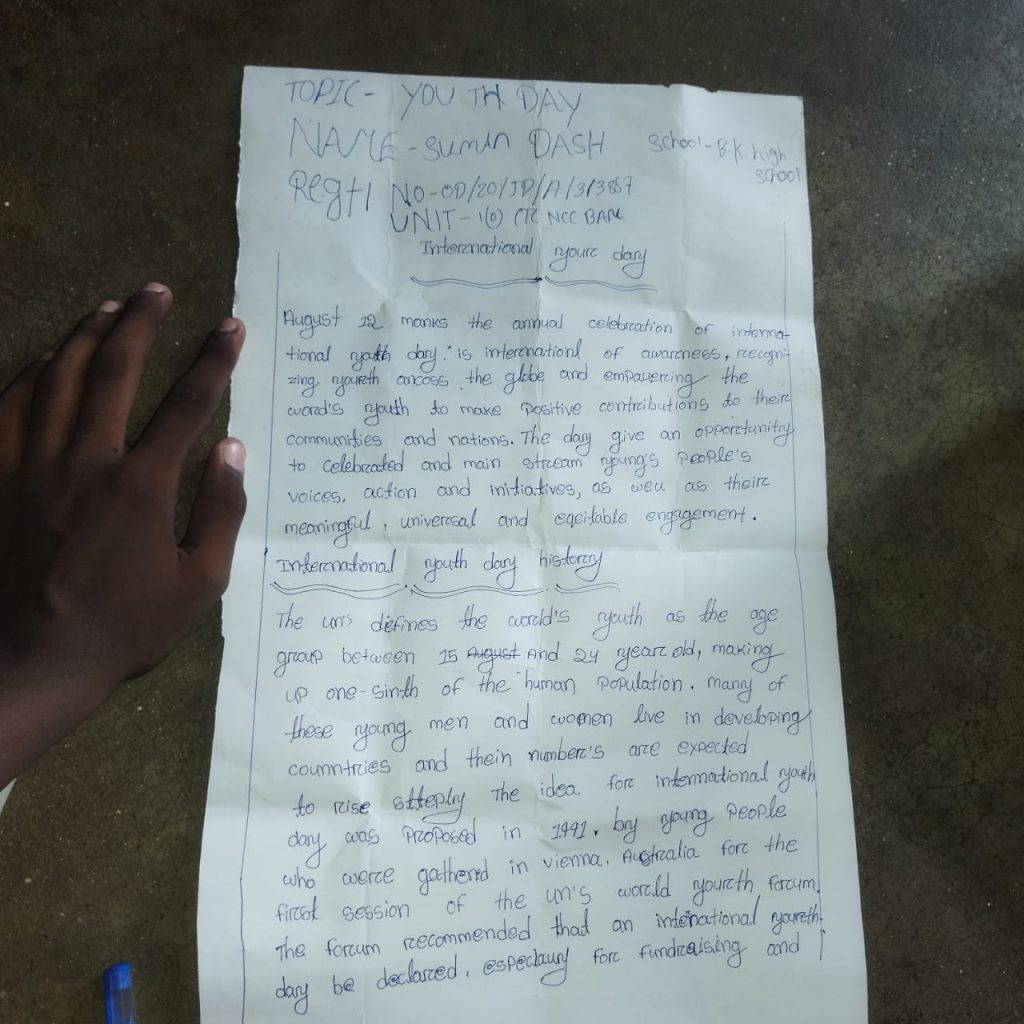 TOPIC- YOUTH DAY
NAME-SUMAN DASH
School-BK high
school
Regtl NO-OD/20/JD/A/3/3857
UNIT-1(O) CTC NCC BAN
International youre day
August 12 manks the annual celebration of interna-
tional youth day. is internationl of awareness, recogni-
zing yourth ancoss the globe and empowering the
word's youth to make positive contributions to their
communities and nations. The day give an opportunity
to celebrated and main stream young's People's
voices, action and initiatives, as well as their
meaningful, universal and eqeitable engagement.
International youth day history
The un's defines the world's youth as the age
group between 15 August And 24 year old, making
up one-sinth of the human population. many of
these young men and women live in developing
counntries and thein number's are expected
to rise stteply The idea for international youth
day was Proposed in 1991. by young People
who were gathered in vienna, Australia for the
first session of the un's world yourth forum,
The forum recommended that an international yourth
day be declared, especiauy for fundraising and